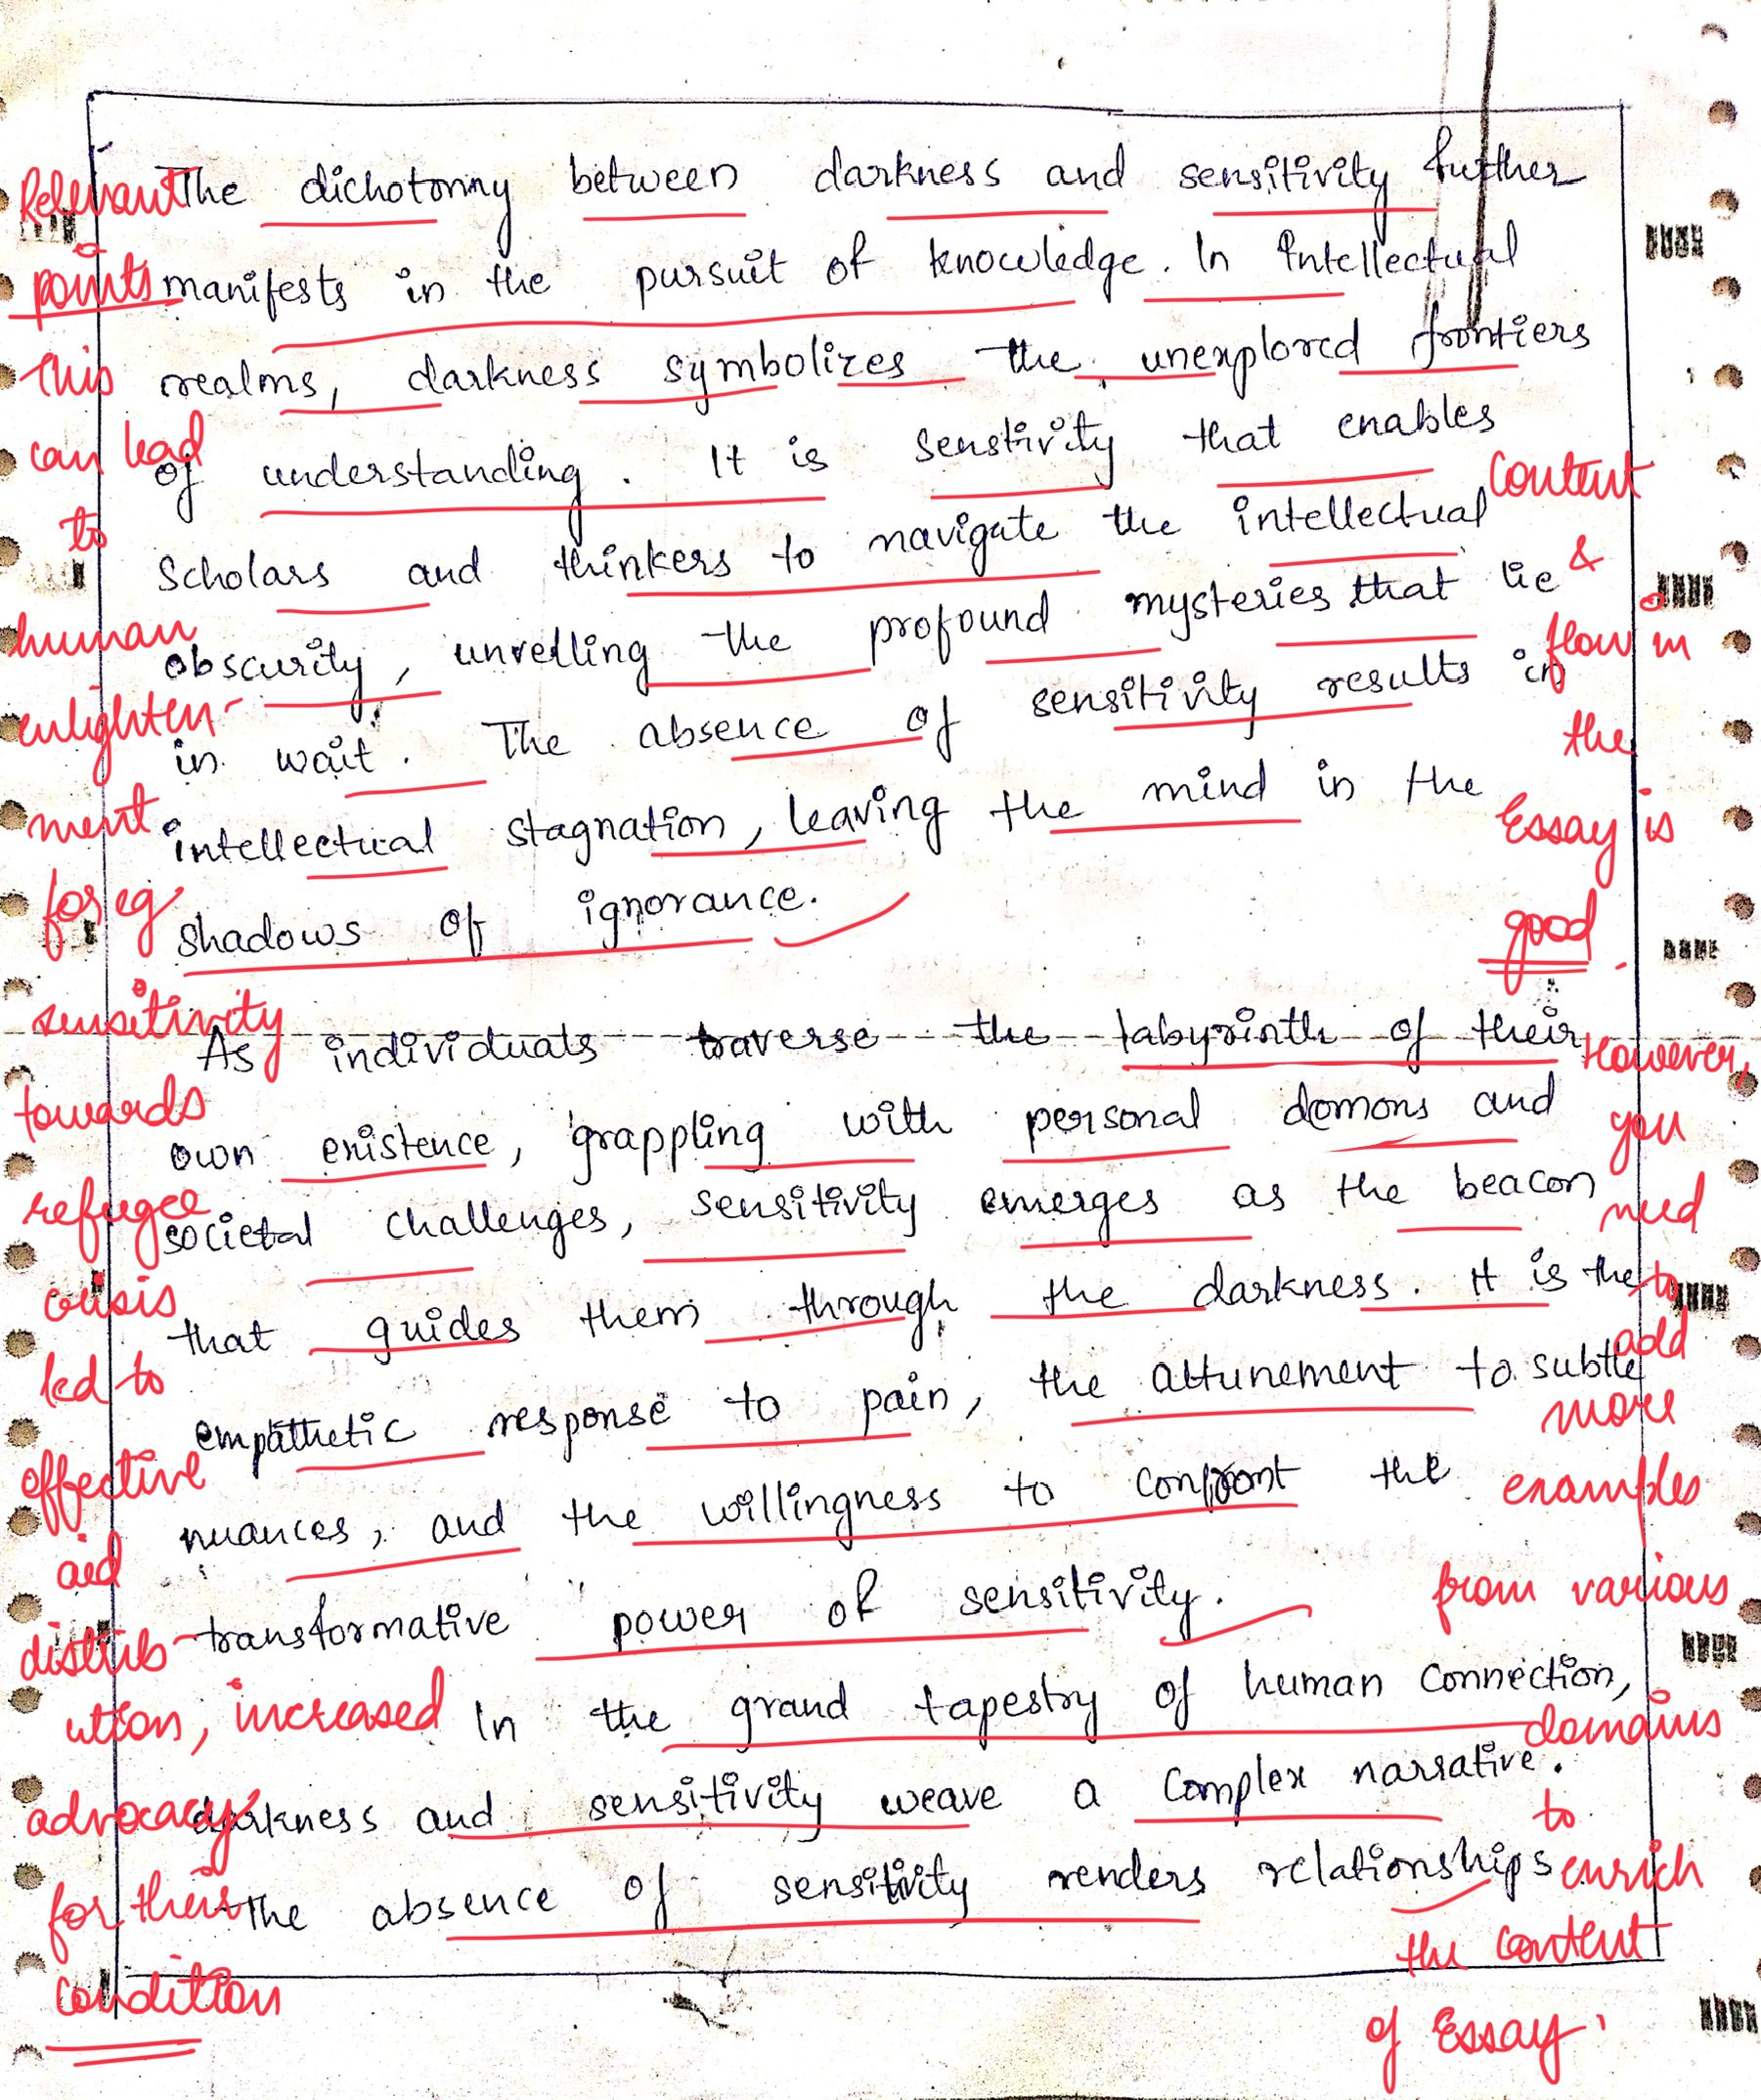 The dichotomy between darkness and sensitivity further
manifests in the pursuit of knowledge. In Intellectual
realms, darkness symbolizes the unexplored frontiers
of understanding. It is senstivity that enables
Scholars and thinkers to navigate the intellectual
obscurity, unvelling the profound mysteries that lie
in wait. The absence of sensitivity results in
intellectual stagnation, leaving the mind in the
shadows of ignorance.
As individuals traverse the labyrinth of their
own existence, grappling with personal domons and
societal challenges, sensitivity emerges as the beacon
that guides them through the darkness. It is the
empathetic response to pain, the attunement to subtle
nuances, and the willingness to confront the
transformative power of sensitivity.
In the grand tapestry of human connection,
darkness and sensitivity weave a complex narrative.
The absence of sensitivity renders relationships
Relevant
points
this
can lead
to
human
enlighten-
ment
for eg
sensitivity
towards
refugee
crisis
led to
effective
aid
distrib
ution, increased
advocacy
for their
condition
Content
&
flow in
the
Essay is
good.
However,
you
need
to
add
more
examples
from various
domains
to
enrich
the content
of Essay.